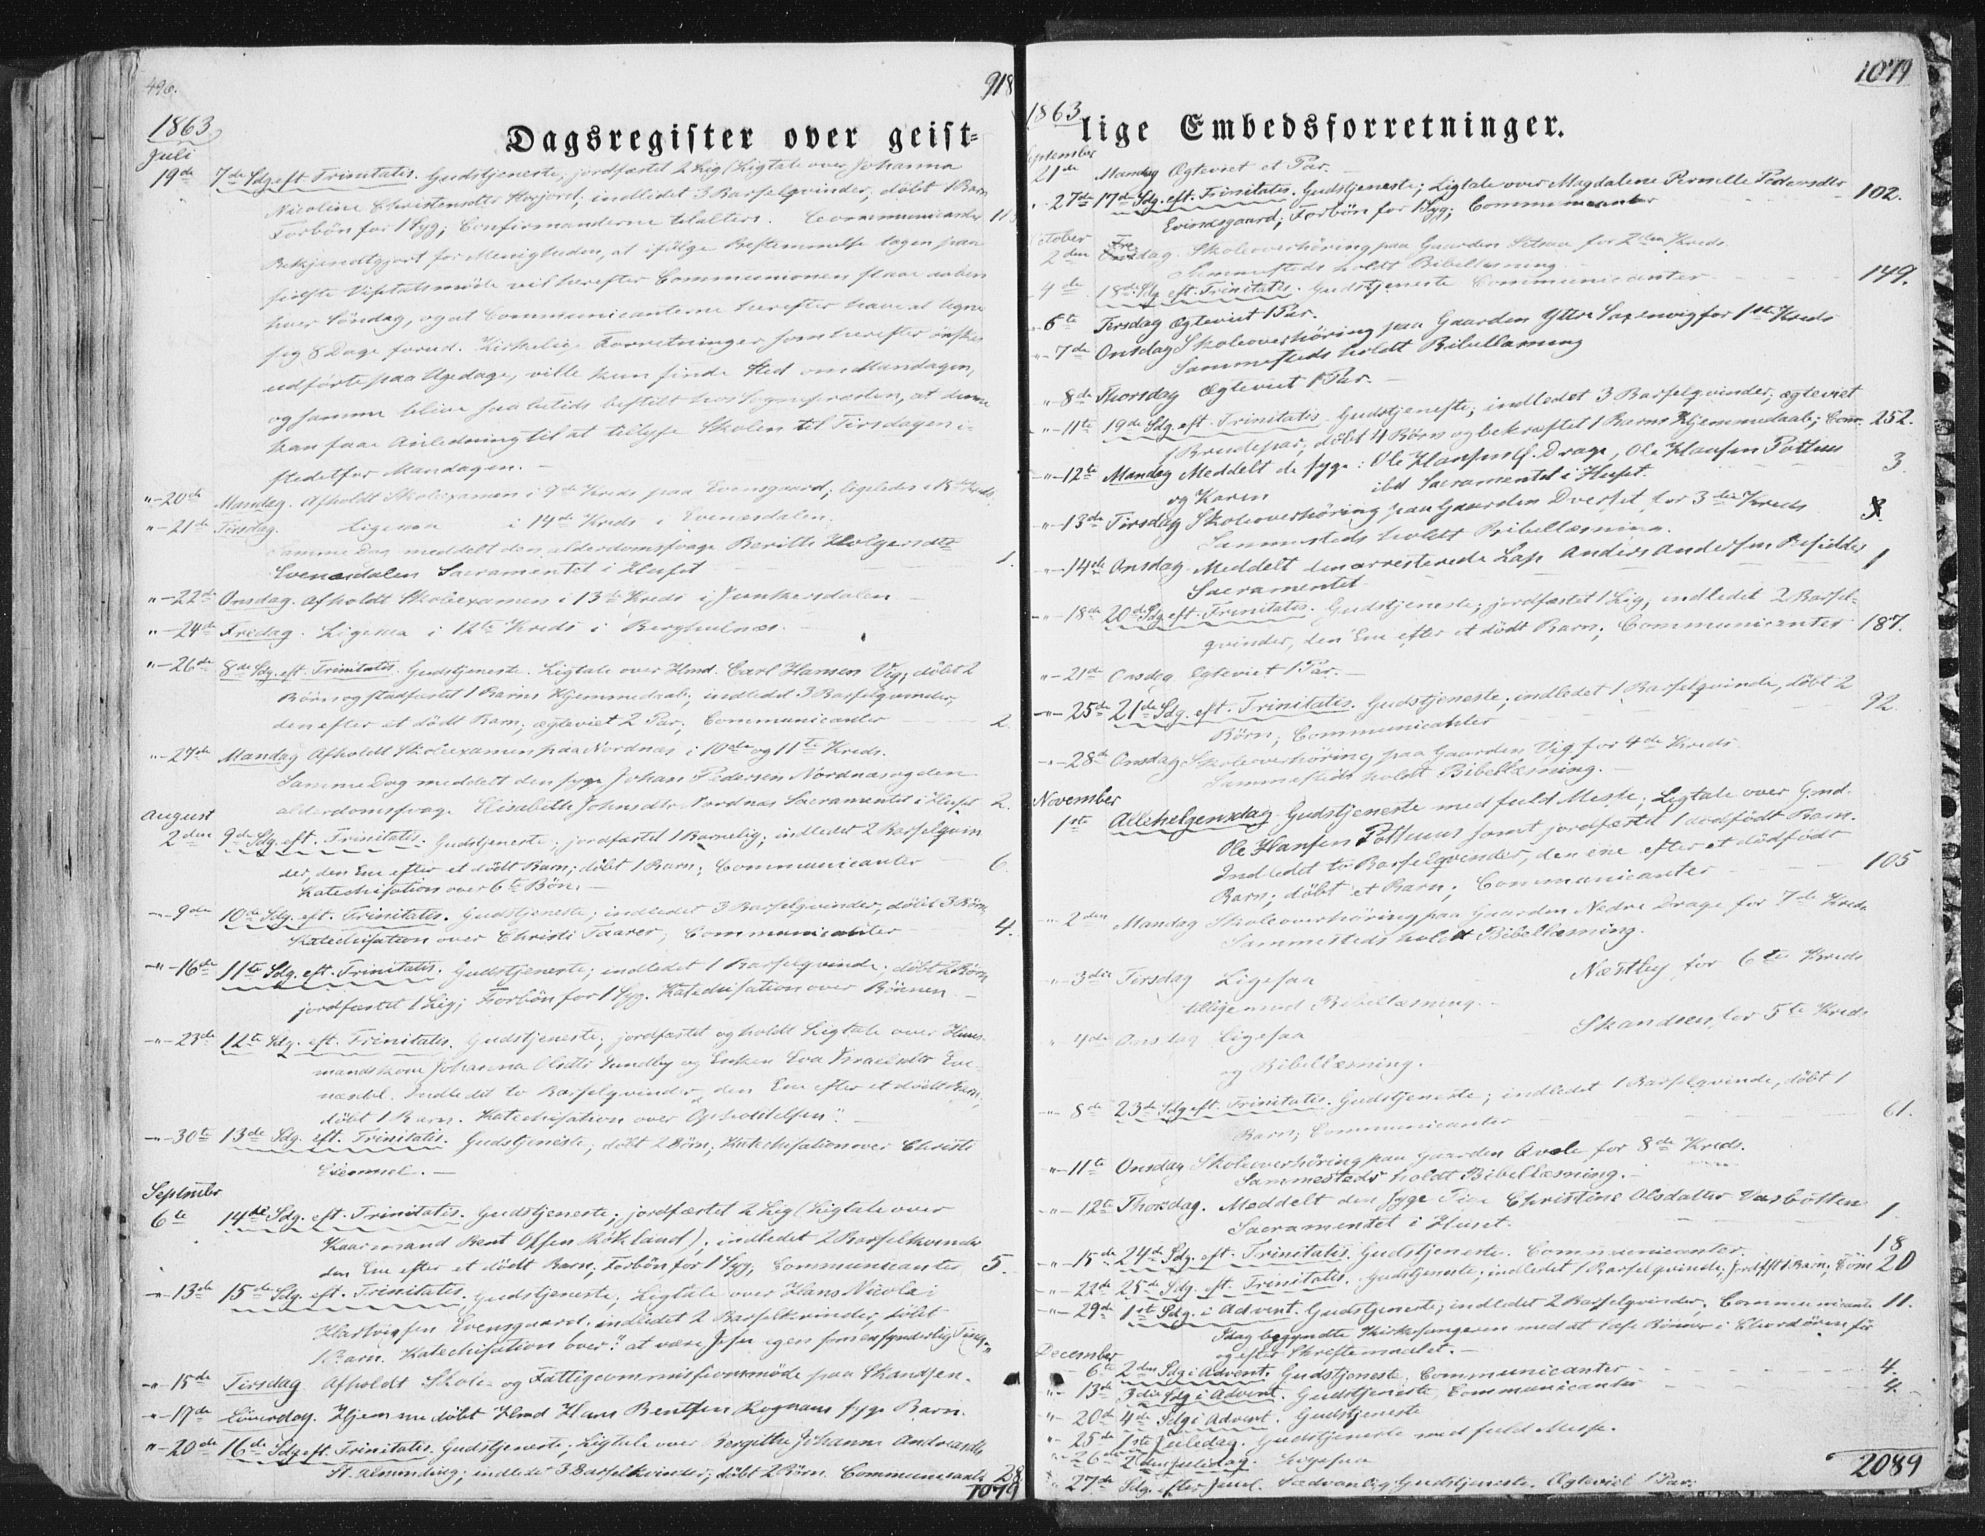 496.
918
1863
Dagsregister over geist=
Juli
19de 7de Sdg. eft. Trinitatis. Gudstjeneste; jordfæstet 2 Lig (Ligtale over Johanna
Nicoline Christensdtr Storjord; indledet 3 Barselqvinder; døbt 1 Barn
Forbøn for 1 Syg; Confirmanderne tilalters. Communicanter 113
Bekjendtgjort for Menigheden, at ifølge Bestemmelse tagen paa
sidste Visitatsmøde vil herefter Communionen staae aaben
hver Søndag, og at Communicanterne herefter have at tegne
sig 8 Dage forud. Kirkelige Forretninger som herefter ønskes
udførte paa Ugedage, ville kun finde Sted om Mandagen,
og samme blive saa betids bestilt hos Sognepræsten, at denne
kan faae Anledning til at tillyse Skolen til Tirsdagen i
stedetfor Mandagen. —
"-20de Mandag. Afholdt Skolexamen i 9de Kreds paa Evensgaard; ligeledes i Kreds
"-21de Tirsdag. Ligesaa i 14de Kreds i Evenesdalen.
Samme Dag meddelt den alderdomssvage Beritte Holgersdtr
Evenesdalen Sacramentet i Huset 1.
"-22de Onsdag. Afholdt Skolexamen i 13de Kreds i Junkersdalen —
"-24de Fredag. Ligesaa i 12te Kreds i Berghulnes. —
"-26de 8de Sdg. eft. Trinitatis. Gudstjeneste. Ligtale over Hmd. Carl Hansen Vig; døbt 2
Børn og stadfæstet 1 Barns Hjemmedaab; indledet 3 Barselqvinder,
den efter et dødt Barn; ægteviet 2 Par; Communicanter 2.
"-27de Mandag Afholdt Skolexamen paa Nordnæs i 10de og 11te Kreds.
Samme Dag meddelt den syge Johan Pedersen Nordnæs og den
alderdomssvage Elisabeth Johnsdtr Nordnæs Sacramentet i Huset 2.
August
2den 9de Sdg. eft. Trinitatis. Gudstjeneste; jordfæstet 1 Barnelig; indledet 2 Barselqvin
der, den Ene efter et dødt Barn; døbt 1 Barn; Communicanter 6.
Katechisation over 6te Bøn. —
"-9de 10de Sdg. eft. Trinitatis. Gudstjeneste; indledet 3 Barselqvinder, døbt 3 Børn
Katechisation over Christi Taarer; Communicanter 4.
"-16de 11te Sdg. eft. Trinitatis. Gudstjeneste; indledet 1 Barselqvinde; døbt 2 Børn
jordfæstet 1 Lig; Forbøn for 1 Syg. Katechisation over Bønnen —
"-23de 12te Sdg. eft. Trinitatis. Gudstjeneste; jordfæstet og holdt Ligtale over Huus-
mandskone Johanna Olsdtr Sundby og Enken Eva Israelsdtr Eve-
nesdal. Indledet to Barselqvinder, den Ene efter et dødt Barn;
døbt 1 Barn. Katechisation over Opholdelsen". —
"-30te 13de Sdg. eft. Trinitatis. Gudstjeneste; døbt 2 Børn; Katechisation over Christi
Exempel. —
September
6te 14de Sdg. eft. Trinitatis. Gudstjeneste; jordfæstet 2 Lig (Ligtale over
Kaarmand Bent Olsen Røkland); indledet 2 Barselkvinder
den Ene efter et dødt Barn; Forbøn for 1 Syg, Communicanter 5.
"-13de 15de Sdg. eft. Trinitatis. Gudstjeneste; Ligtale over Hans Nicolai
Hartvigsen Evensgaard. indledet 2 Barselkvinder, døbt
1 Barn. Katechisation over: "at være Jesu egen som en synderlig Ting"
"-15de Tirsdag Afholdt Skole- og Fattigcommissionsmøde paa Skandsen.
"-19de Løverdag. Hjemmedøbt Hmd Hans Bentsen Rognans syge Barn.
"-20de 16de Sdg. eft. Trinitatis. Gudstjeneste. Ligtale over Bergithe Johanne Andreasdtr
St. Almending; indledet 3 Barselkvinder; døbt 2 Børn. Communicanter 28
1079
1079
1863
lige Embedsforretninger.
September
21de Mandag Ægteviet et Par.
"-27de 17de Sdg. eft. Trinitatis. Gudstjeneste; Ligtale over Magdalene Pernille Pedersdtr
Evensgaard; Forbøn for 1 Syg; Communicanter 102.
October
2den Fredag. Skoleoverhøring paa Gaarden Setsaa for 2den Kreds
Sammesteds holdt Bibellæsning
4de 18de Sdg. eft. Trinitatis. Gudstjeneste Communicanter 149.
"6te Tirsdag Ægteviet 1 Par.
"-7de Onsdag Skoleoverhøring paa Gaarden Yttre Saxenvig for 1ste Kreds
Sammesteds holdt Bibellæsning
"-8de Thorsdag Ægteviet 1 Par. —
"-11te 19de Sdg. eft. Trinitatis. Gudstjeneste; indledet 3 Barselqvinder; ægteviet
1 Brudepar; døbt 4 Børn og bekræftet 1 Barns Hjemmedaab; Com. 252.
"-12te Mandag Meddelt de syge: Ole Hansen N. Drage, Ole Hansen Pothuus 3
og Karen ibd Sacramentet i Huset.
"-13de Tirsdag Skoleoverhøring paa Gaarden Dverset for 3die Kreds
Sammesteds holdt Bibellæsning.
"-14de Onsdag Meddelt den arresterede Lap Anders Andersen 1
Sacramentet
"-18de 20de Sdg. eft. Trinitatis. Gudstjeneste; jordfæstet 1 Lig; indledet 2 Barsel-
qvinder, den Ene efter et dødt Barn; Communicanter 187.
"-21de Onsdag Ægteviet 1 Par. —
"-25de 21de Sdg. eft. Trinitatis. Gudstjeneste; indledet 1 Barselqvinde, døbt 2
Børn; Communicanter 92.
"-28de Onsdag Skoleoverhøring paa Gaarden Vig for 4de Kreds
Sammesteds holdt Bibellæsning. —
November
1ste Allehelgensdag Gudstjeneste med fuld Messe; Ligtale over Gmd.
Ole Hansen Pothuus samt jordfæstet 1 dødfødt Barn.
Indledet to Barselqvinder, den ene efter et dødfødt
Barn; døbt et Barn; Communicanter 105
"2den Mandag Skoleoverhøring paa Gaarden Nedre Drage for 7de Kreds
Sammesteds holdt Bibellæsning.
"3die Tirsdag Ligesaa Næstby for 6te Kreds
tilligemed Bibellæsning. —
"4de Onsdag Ligesaa Skandsen for 5te Kreds
og Bibellæsning. —
"-8de 23de Sdg. eft. Trinitatis. Gudstjeneste; indledet 1 Barselqvinde, døbt 1
Barn; Communicanter 61.
"-11te Onsdag Skoleoverhøring paa Gaarden Qvæle for 8de Kreds.
Sammesteds holdt Bibellæsning. —
"-12te Thorsdag. Meddelt den syge Pige Christine Olsdatter Vasbotten 1
Sacramentet i Huset.
"-15de 24de Sdg. eft. Trinitatis. Gudstjeneste. Communicanter. 18
"-22de 25de Sdg. eft. Trinitatis. Gudstjeneste; indledet 1 Barselqvinde; jordfst 1 Barn; Com 20
"-29de 1ste Sdg. i Advent. Gudstjeneste; indledet 2 Barselqvinder. Communicanter 11.
Idag begyndte Kirkesangeren med at læse Bønnen i Chordøren før
og efter Skriftemaalet. —
December
6te 2den Sdg i Advent. Gudstjeneste. Communicanter 4.
"-13de 3die Sdg i Advent. Gudstjeneste, Communicanter 4.
"-20de 4de Sdg i Advent. Gudstjeneste
"-25de 1ste Juledag. Gudstjeneste med fuld Messe.
"-26de 2den Juledag. Ligesaa
"-27de Sdg. efter Juul. Sædvanlig Gudstjeneste. Ægteviet 1 Par.
2089